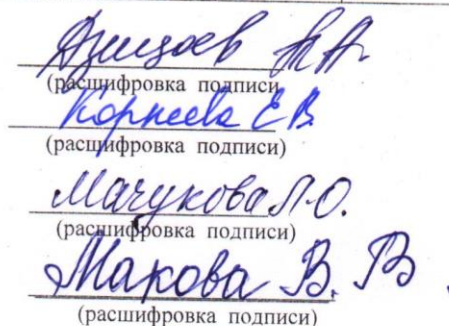 Дзицоев А.А.
(расшифровка подписи
Корнеева Е В.
(расшифровка подписи)
Мачукова Л.О.
(расшифровка подписи)
Макова В. В
(расшифровка подписи)